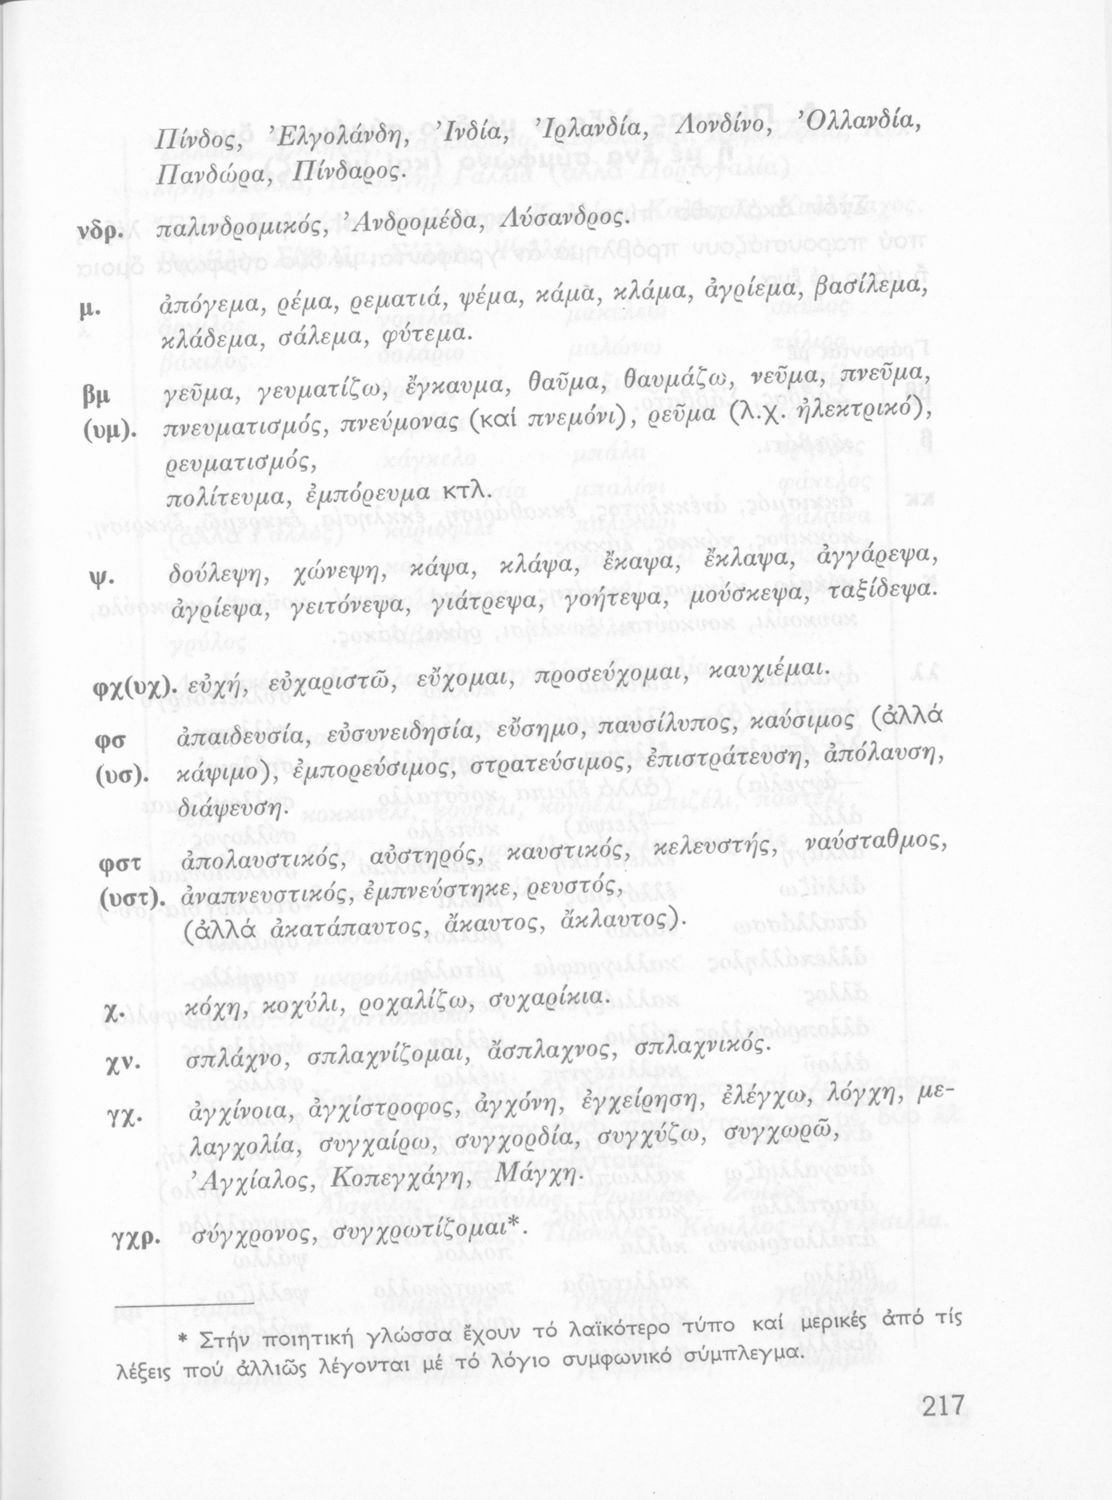 Πίνδος, Ἑλγολάνδη, Ἰνδία, Ἰρλανδία, Λονδίνο, Ὀλλανδία,
Πανδώρα, Πίνδαρος.
νδρ. παλινδρομικός, Ἀνδρομέδα, Λύσανδρος.
μ. ἀπόγεμα, ρέμα, ρεματιά, ψέμα, κάμα, κλάμα, ἀγρίεμα, βασίλεμα,
κλάδεμα, σάλεμα, φύτεμα.
βμ γεῦμα, γευματίζω, ἔγκαυμα, θαῦμα, θαυμάζω, νεῦμα, πνεῦμα,
(υμ). πνευματισμός, πνεύμονας (καί πνεμόνι), ρεῦμα (λ.χ. ἠλεκτρικό),
ρευματισμός,
πολίτευμα, ἐμπόρευμα κτλ.
ψ. δούλεψη, χώνεψη, κάψα, κλάψα, ἔκαψα, ἔκλαψα, ἀγγάρεψα,
ἀγρίεψα, γειτόνεψα, γιάτρεψα, γοήτεψα, μούσκεψα, ταξίδεψα.
φχ(υχ). εὐχή, εὐχαριστῶ, εὔχομαι, προσεύχομαι, καυχιέμαι.
φσ ἀπαιδευσία, εὐσυνειδησία, εὔσημο, παυσίλυπος, καύσιμος (ἀλλά
(υσ). κάψιμο), ἐμπορεύσιμος, στρατεύσιμος, ἐπιστράτευση, ἀπόλαυση,
διάψευση.
φστ ἀπολαυστικός, αὐστηρός, καυστικός, κελευστής, ναύσταθμος,
(υστ). ἀναπνευστικός, ἐμπνεύστηκε, ρευστός,
(ἀλλά ἀκατάπαυτος, ἄκαυτος, ἄκλαυτος).
χ. κόχη, κοχύλι, ροχαλίζω, συχαρίκια.
χν. σπλάχνο, σπλαχνίζομαι, ἄσπλαχνος, σπλαχνικός.
γχ. ἀγχίνοια, ἀγχίστροφος, ἀγχόνη, ἐγχείρηση, ἐλέγχω, λόγχη, με-
λαγχολία, συγχαίρω, συγχορδία, συγχύζω, συγχωρῶ,
Ἀγχίαλος, Κοπεγχάγη, Μάγχη.
γχρ. σύγχρονος, συγχρωτίζομαι*.
* Στήν ποιητική γλώσσα ἔχουν τό λαϊκότερο τύπο καί μερικές ἀπό τίς
λέξεις πού ἀλλιῶς λέγονται μέ τό λόγιο συμφωνικό σύμπλεγμα.
217